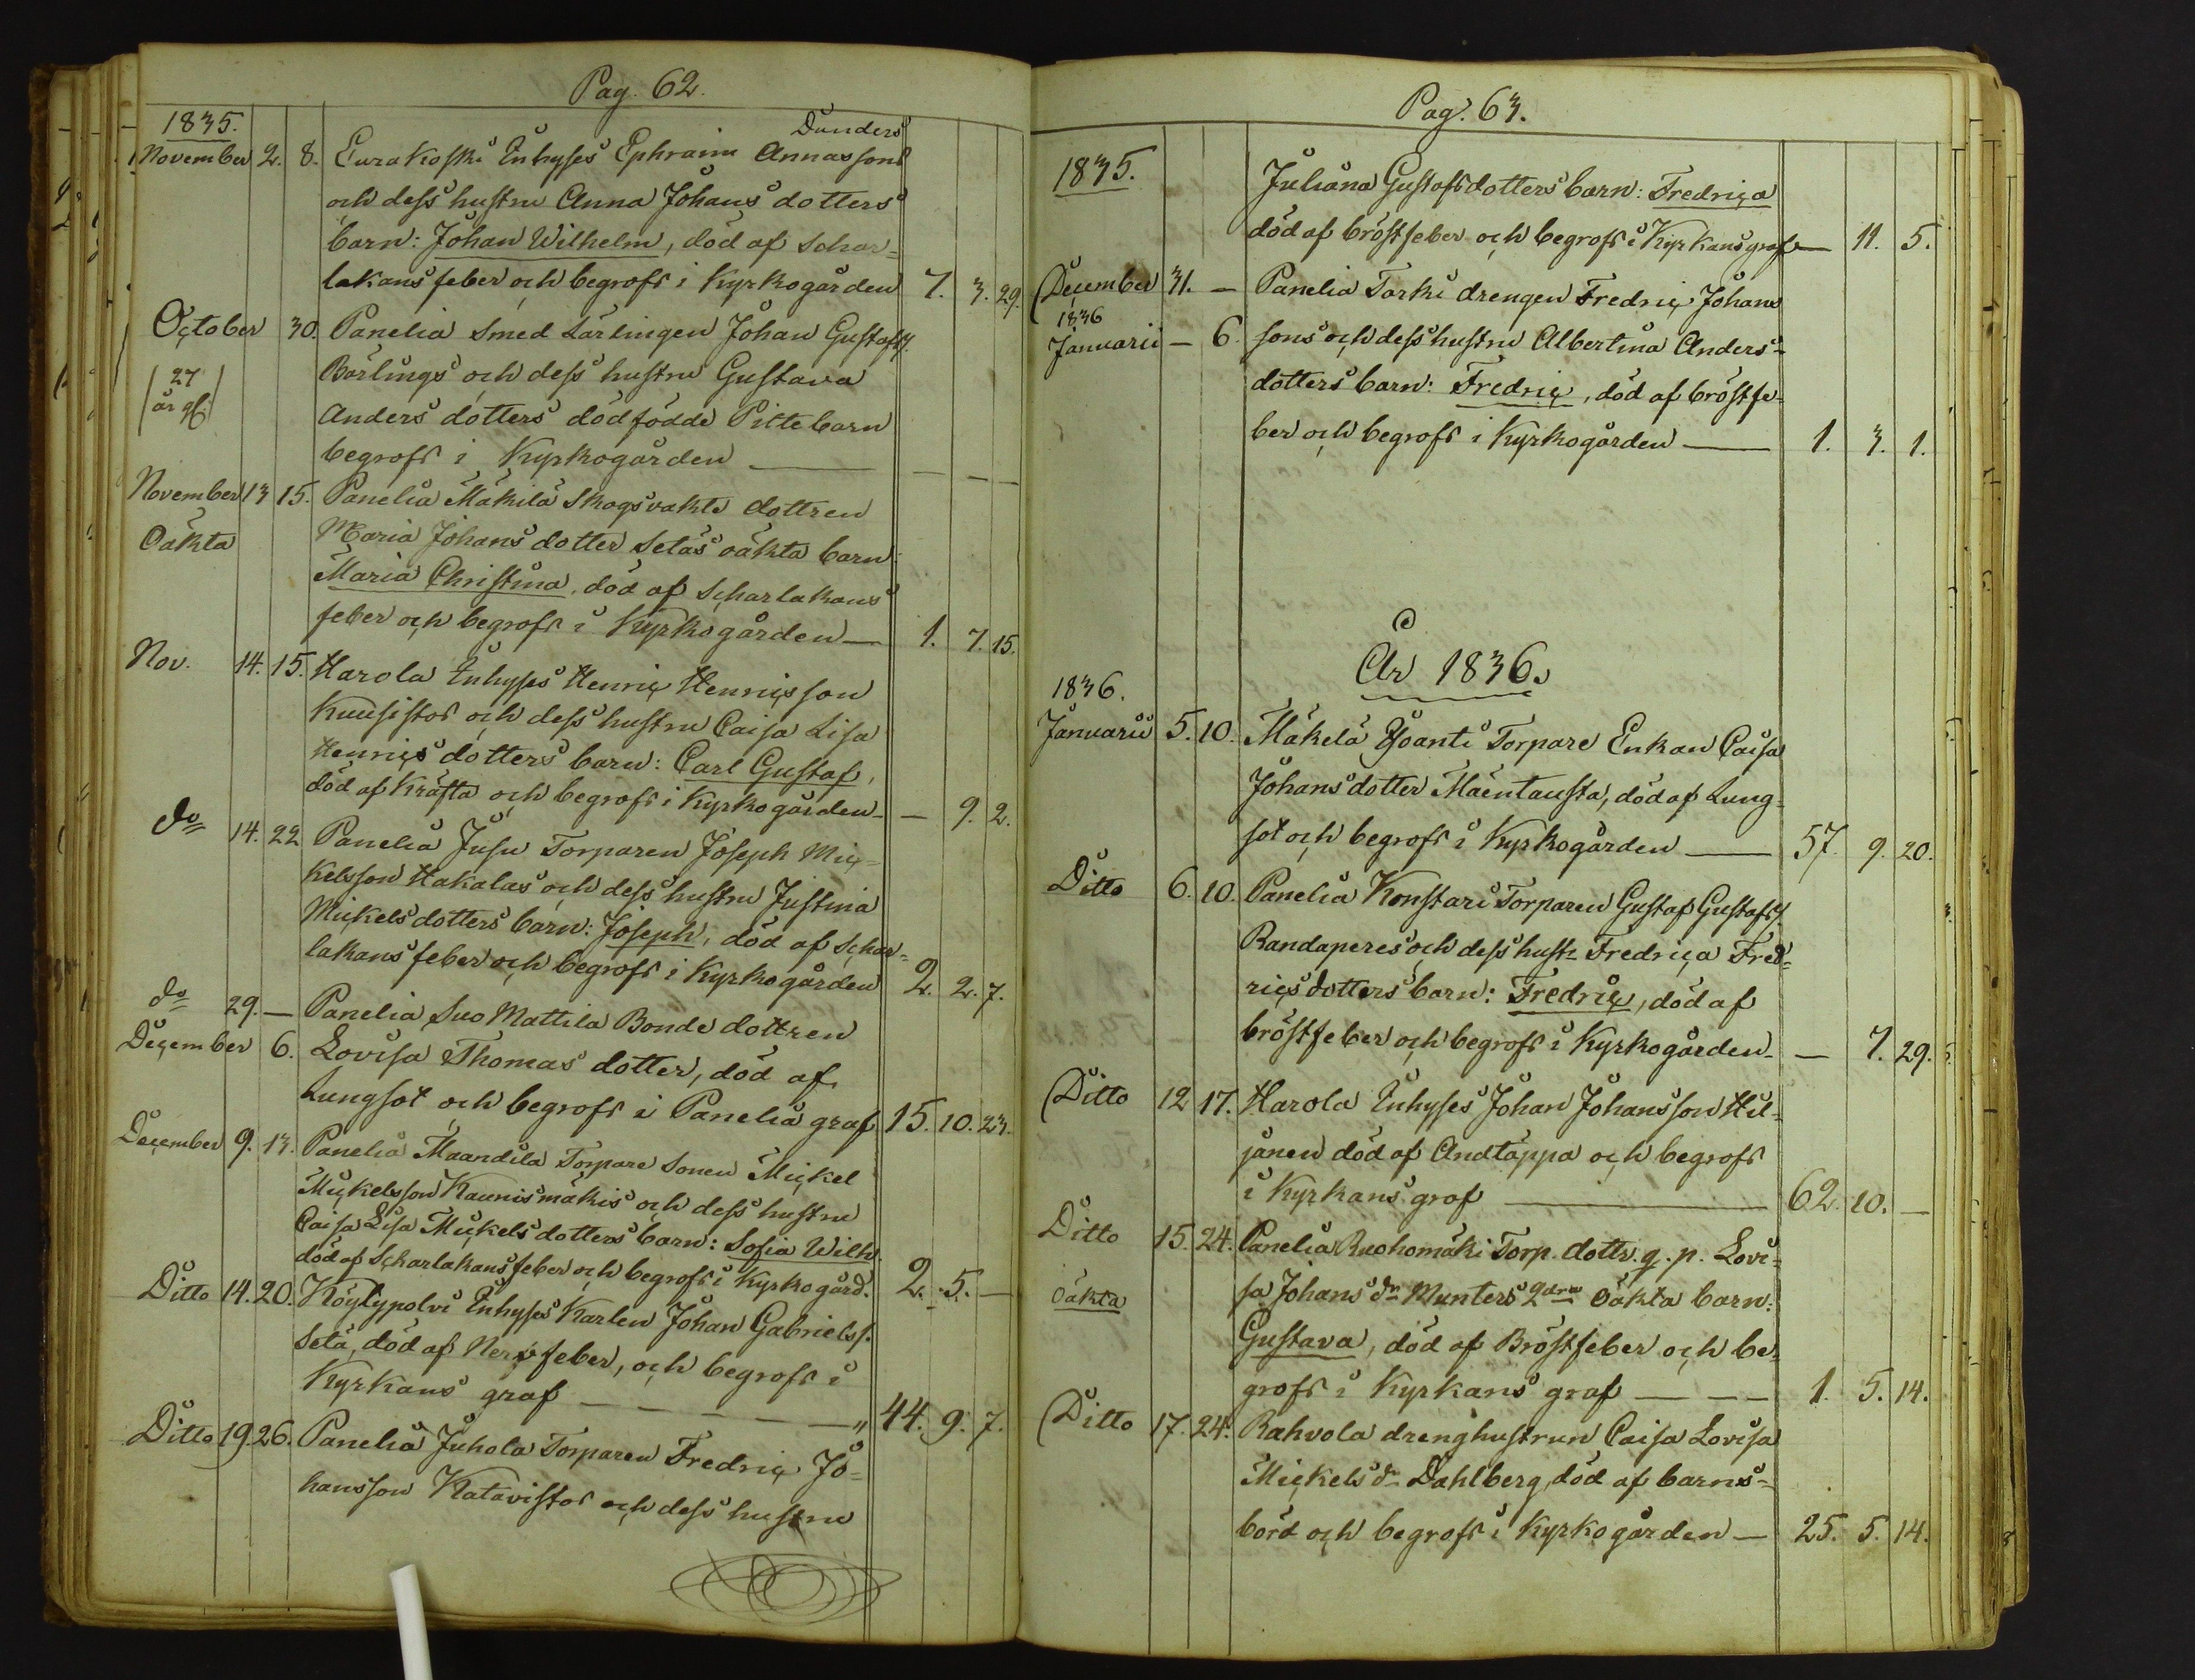 Pag. 62.
1835.
Dunders
November 2. 8. Eurakoski Inhyses Ephraim Annassons
och dess hustru Anna Johans dotters
barn: Johan Wilhelm, död af Schar-
lakansfeber och begrofs i Kyrkogården 7. 3. 29.
October 30. Panelia Smed Lärlingen Johan Gustafss.
27 Bärlings och dess hustru Gustava
år gl. Anders dotters dödfödde Pittebarn
begrofs i Kyrkogården — — —
November 13 15. Panelia Mäkilä Skogsvakts dottren
Oäkta Maria Johans dotter Setäs oäkta barn:
Maria Christina, död af Scharlakans
feber och begrofs i Kyrkogården — 1. 7. 15.
Nov. 14. 15. Harola Inhyses Henric Henricsson
Kuusistos och dess hustru Caisa Lisa
Henrics dotters barn: Carl Gustaf,
död af Kräfta och begrofs i Kyrkogården — 9. 2.
do 14. 22 Panelia Jusu Torparen Joseph Mic-
kelsson Hakalas och dess hustru Justina
Mickelsdotters barn: Joseph, död af Schar-
lakansfeber och begrofs i Kyrkogården 2. 2. 7.
do 29. — Panelia Suo Mattila Bonde dottren
December 6. Lovisa Thomas dotter, död af
Lungsot och begrofs i Panelia graf 15. 10. 23.
December 9. 13. Panelia Maandila Torpare Sonen Mickel
Mickelsson Kaunismäkis och dess hustru
Caisa Lisa Mickels dotters barn: Sofia Wilh.
död af Scharlakansfeber och begrofs i Kyrkogård. 2. 5. —
Ditto 14. 20. Köylypolvi Inhyses Karlen Johan Gabrielss.
Setä, död af Nervfeber, och begrofs i
Kyrkans graf — — — — — " 44. 9. 7.
Ditto 19. 26. Panelia Juhola Torparen Fredric Jo-
hansson Katavistos och dess hustru
Pag. 63.
1835. Juliana Gustafsdotters barn: Fredrica
död af bröstfeber och begrofs i Kyrkans graf — 11. 5.
December 31. — Panelia Torki drengen Fredric Johans
1836
Januarii — 6. sons och dess hustru Albertina Anders-
dotters barn: Fredric, död af bröstfe-
ber och begrofs i Kyrkogården — 1. 3. 1.
År 1836.
1836.
Januarii 5. 10. Mäkelä Yoanti Torpare Enkan Caisa
Johansdotter Mäentausta, död af Lung-
sot och begrofs i Kyrkogården — 57. 9. 20.
Ditto 6. 10. Panelia Konstari Torparen Gustaf Gustafss.
Randaperes och dess hustr. Fredrica Fred-
ricsdotters barn: Fredric, död af
bröstfeber och begrofs i Kyrkogården — 7. 29.
Ditto 12 17. Harola Inhyses Johan Johansson Hil-
jänen död af Andtäppa och begrofs
i Kyrkans graf — 62. 10. —
Ditto 15. 24. Panelia Ruohomäki Torp. dottr. q. p. Lovi-
Oäkta sa Johans dr. Munters 2dra Oäkta barn:
Gustava, död af Bröstfeber och be-
grofs i Kyrkans graf — — — 1. 5. 14.
Ditto 17. 24. Rahvola drenghustrun Caisa Lovisa
Mickels dr. Dahlberg, död af barns-
börd och begrofs i Kyrkogården — 25. 5. 14.